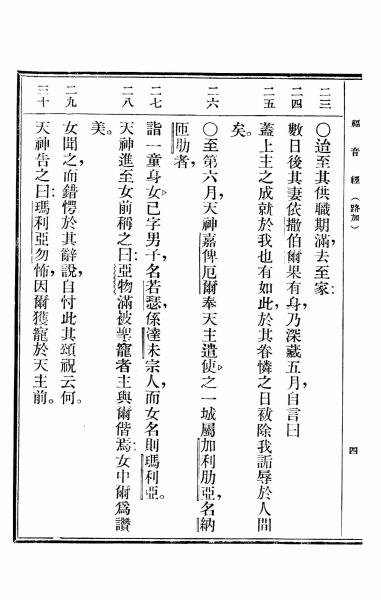 福音經（路加）
四
二三
○迨至其供職期滿，去至家；
二四
數日後其妻依撒伯爾果有身，乃深藏五月，自言曰
二五
蓋上主之成就於我也有如此，於其眷憐之日祓除我詬辱於人間
矣。
二六
○至第六月，天神嘉俾厄爾奉天主遣使之一城屬加利肋亞，名納
匝肋者，
二七
詣一童身女，已字男子，名若瑟，係達未宗人，而女名則瑪利亞。
二八
天神進至女前稱之曰：亞物滿被聖寵者主與爾偕焉；女中爾爲讚
美。
二九
女聞之而錯愕於其辭說，自忖此其頌祝云何。
三十
天神告之曰：瑪利亞勿怖，因爾獲寵於天主前。